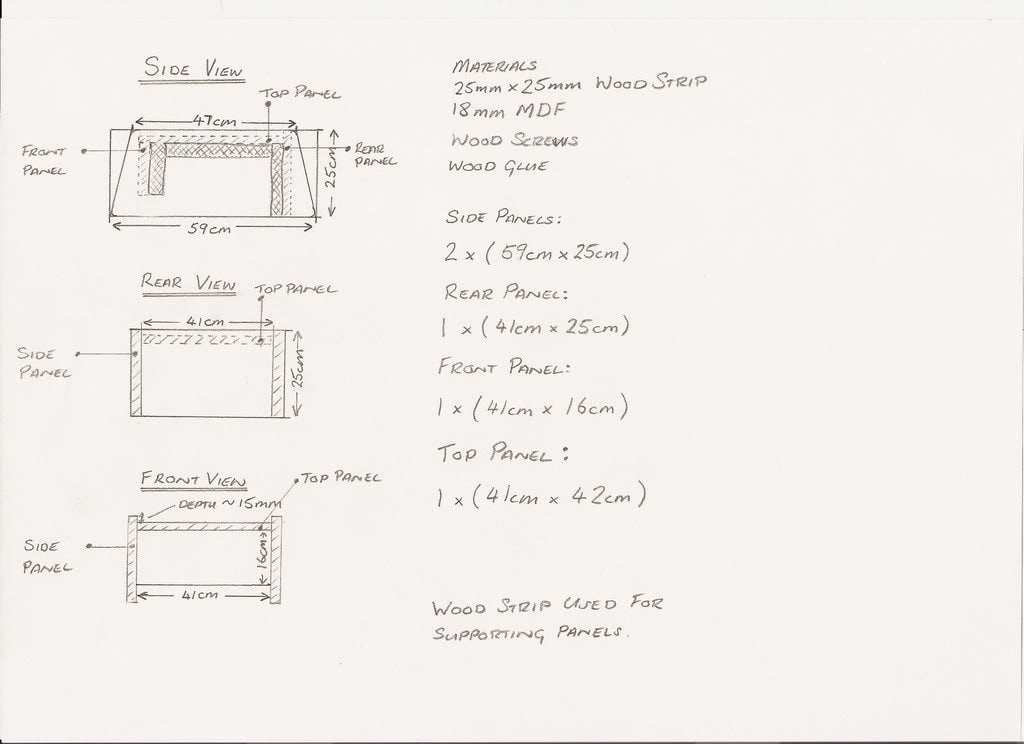 SIDE VIEW
TOP PANEL
47cm
FRONT PANEL
REAR PANEL
25cm
59cm
REAR VIEW
TOP PANEL
41cm
SIDE PANEL
25cm
FRONT VIEW
TOP PANEL
DEPTH ~ 15mm
SIDE PANEL
16cm
41cm
MATERIALS
25mm x 25mm WOOD STRIP
18mm MDF
WOOD SCREWS
WOOD GLUE
SIDE PANELS:
2 x (59cm x 25cm)
REAR PANEL:
1 x (41cm x 25cm)
FRONT PANEL:
1 x (41cm x 16cm)
TOP PANEL:
1 x (41cm x 42cm)
WOOD STRIP USED FOR
SUPPORTING PANELS.